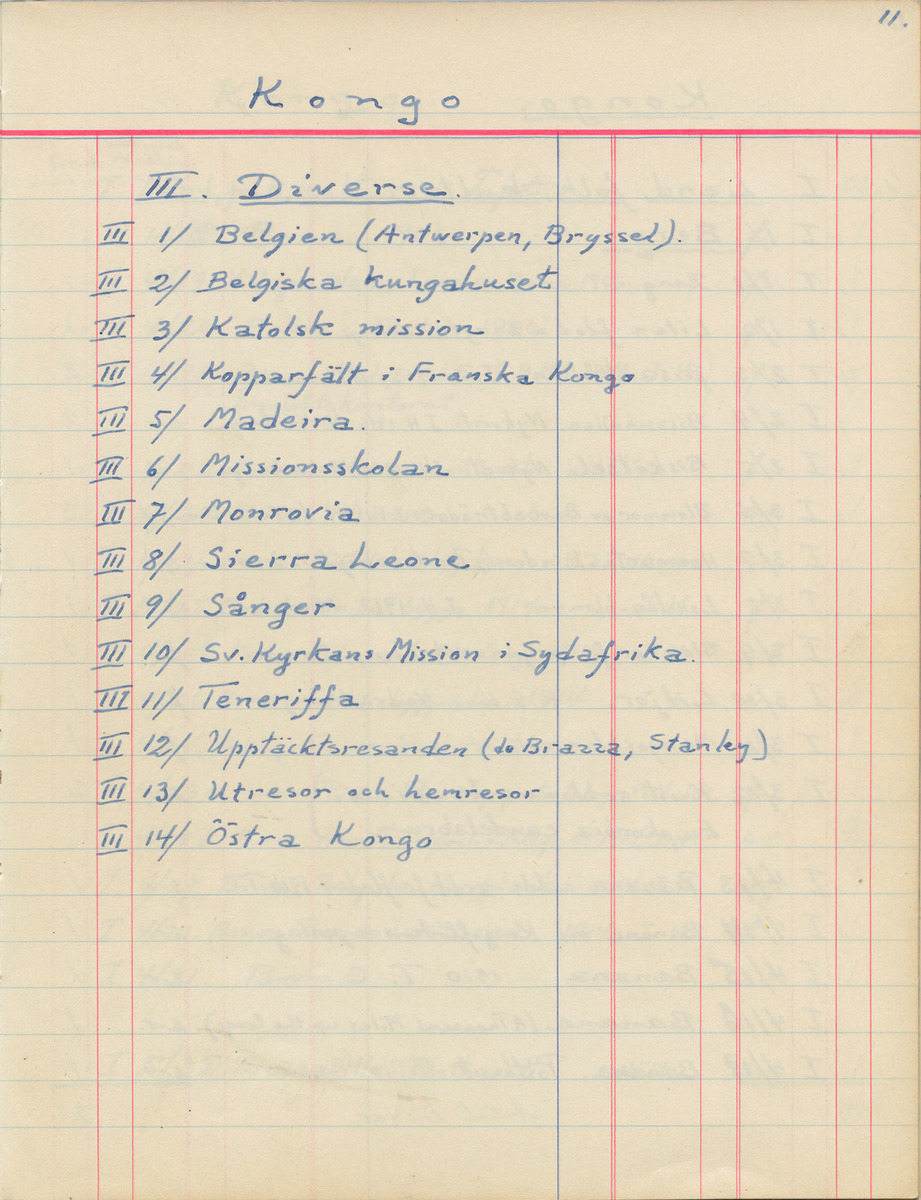 11.
Kongo
III. Diverse.
III 1/ Belgien (Antwerpen, Bryssel).
III 2/ Belgiska kungahuset
III 3/ Katolsk mission
III 4/ Kopparfält i Franska Kongo
III 5/ Madeira.
III 6/ Missionsskolan
III 7/ Monrovia
III 8/ Sierra Leone
III 9/ Sånger
III 10/ Sv. Kyrkans Mission i Sydafrika.
III 11/ Teneriffa
III 12/ Upptäcktsresanden (de Brazza, Stanley)
III 13/ Utresor och hemresor
III 14/ Östra Kongo